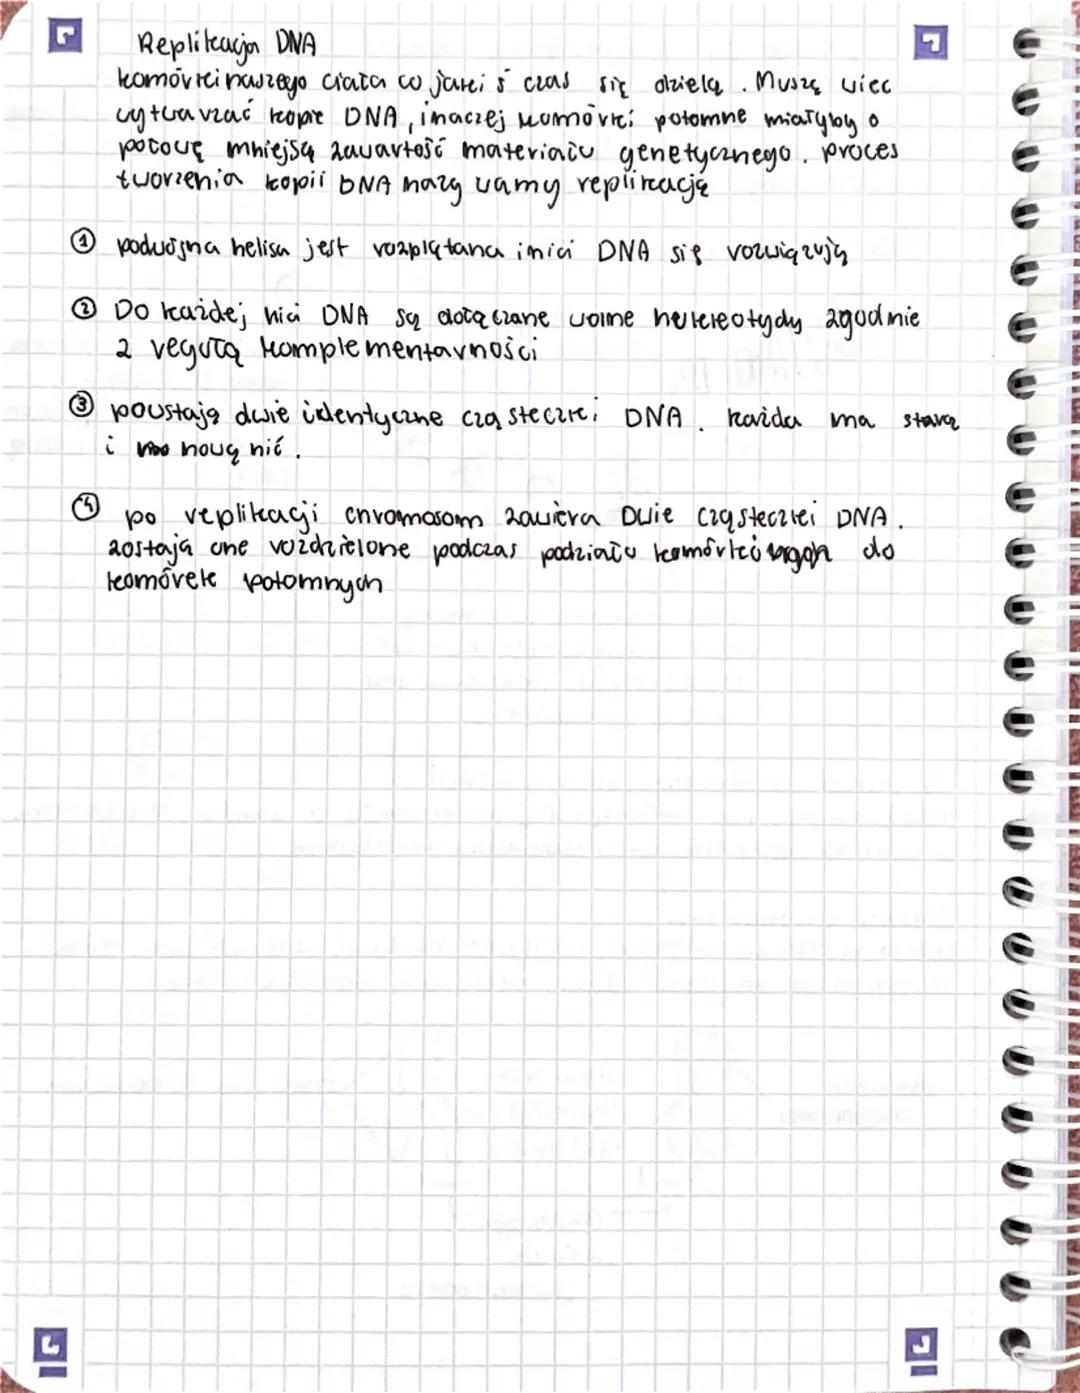 Replikacja DNA
komórki naszego ciała co jakiś czas się dzielą. Muszą więc
wytwarzać kopie DNA, inaczej komórki potomne miałyby o
połowę mniejszą zawartość materiału genetycznego. proces
tworzenia kopii DNA nazywamy replikacją
① podwójna helisa jest rozplątana i nici DNA się rozwiązują
② Do każdej nici DNA są dołączane wolne nukleotydy zgodnie
z regułą komplementarności
③ powstają dwie identyczne cząsteczki DNA. każda ma starą
i nową nić.
④ po replikacji chromosom zawiera Dwie cząsteczki DNA.
zostają one rozdzielone podczas podziału komórkowych do
komórek potomnych